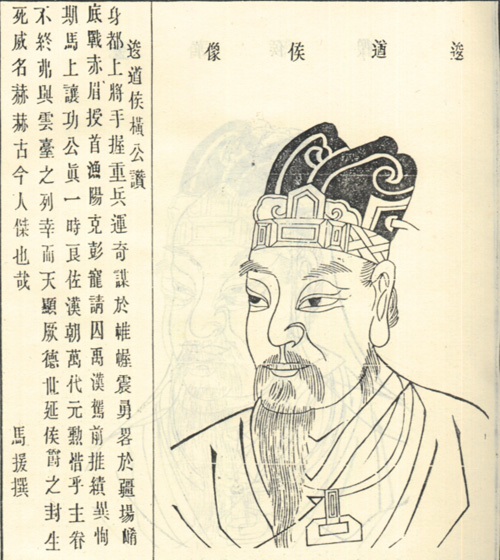 逡遒侯像
逡道侯橫公讚
身都上將手握重兵運奇謀於帷幄震勇畧於疆場崤
底戰赤眉授首漁陽克彭寵請囚禹漢駕前推績異恂
期馬上讓功公眞一時良佐漢朝萬代元勳惜乎主眷
不終弗與雲臺之列幸而天顯厥德世延侯爵之封生
死威名赫赫古今人傑也哉 馬援撰